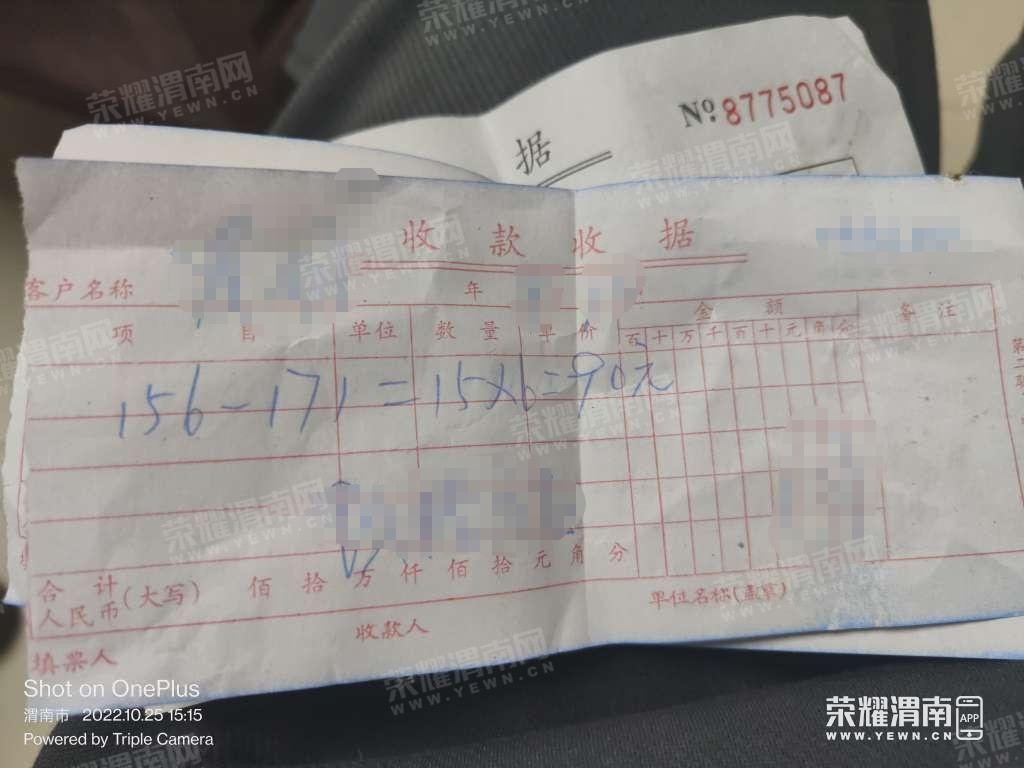 据
Nº 8775087
收款收据
客户名称 年
项目 单位 数量 单价 金额 备注
百十万千百十元角分
156-171=15×6=90元
合计人民币(大写) 佰拾万仟佰拾元角分
单位名称(盖章)
填票人 收款人
第二联
Shot on OnePlus
渭南市 2022.10.25 15:15
Powered by Triple Camera
荣耀渭南网 APP
WWW.YEWN.CN